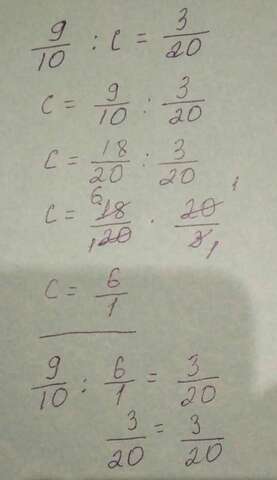 9/10 : c = 3/20
c = 9/10 : 3/20
c = 18/20 : 3/20
c = 18/20 · 20/3 6 1 1 1
c = 6/1
9/10 : 6/1 = 3/20
3/20 = 3/20